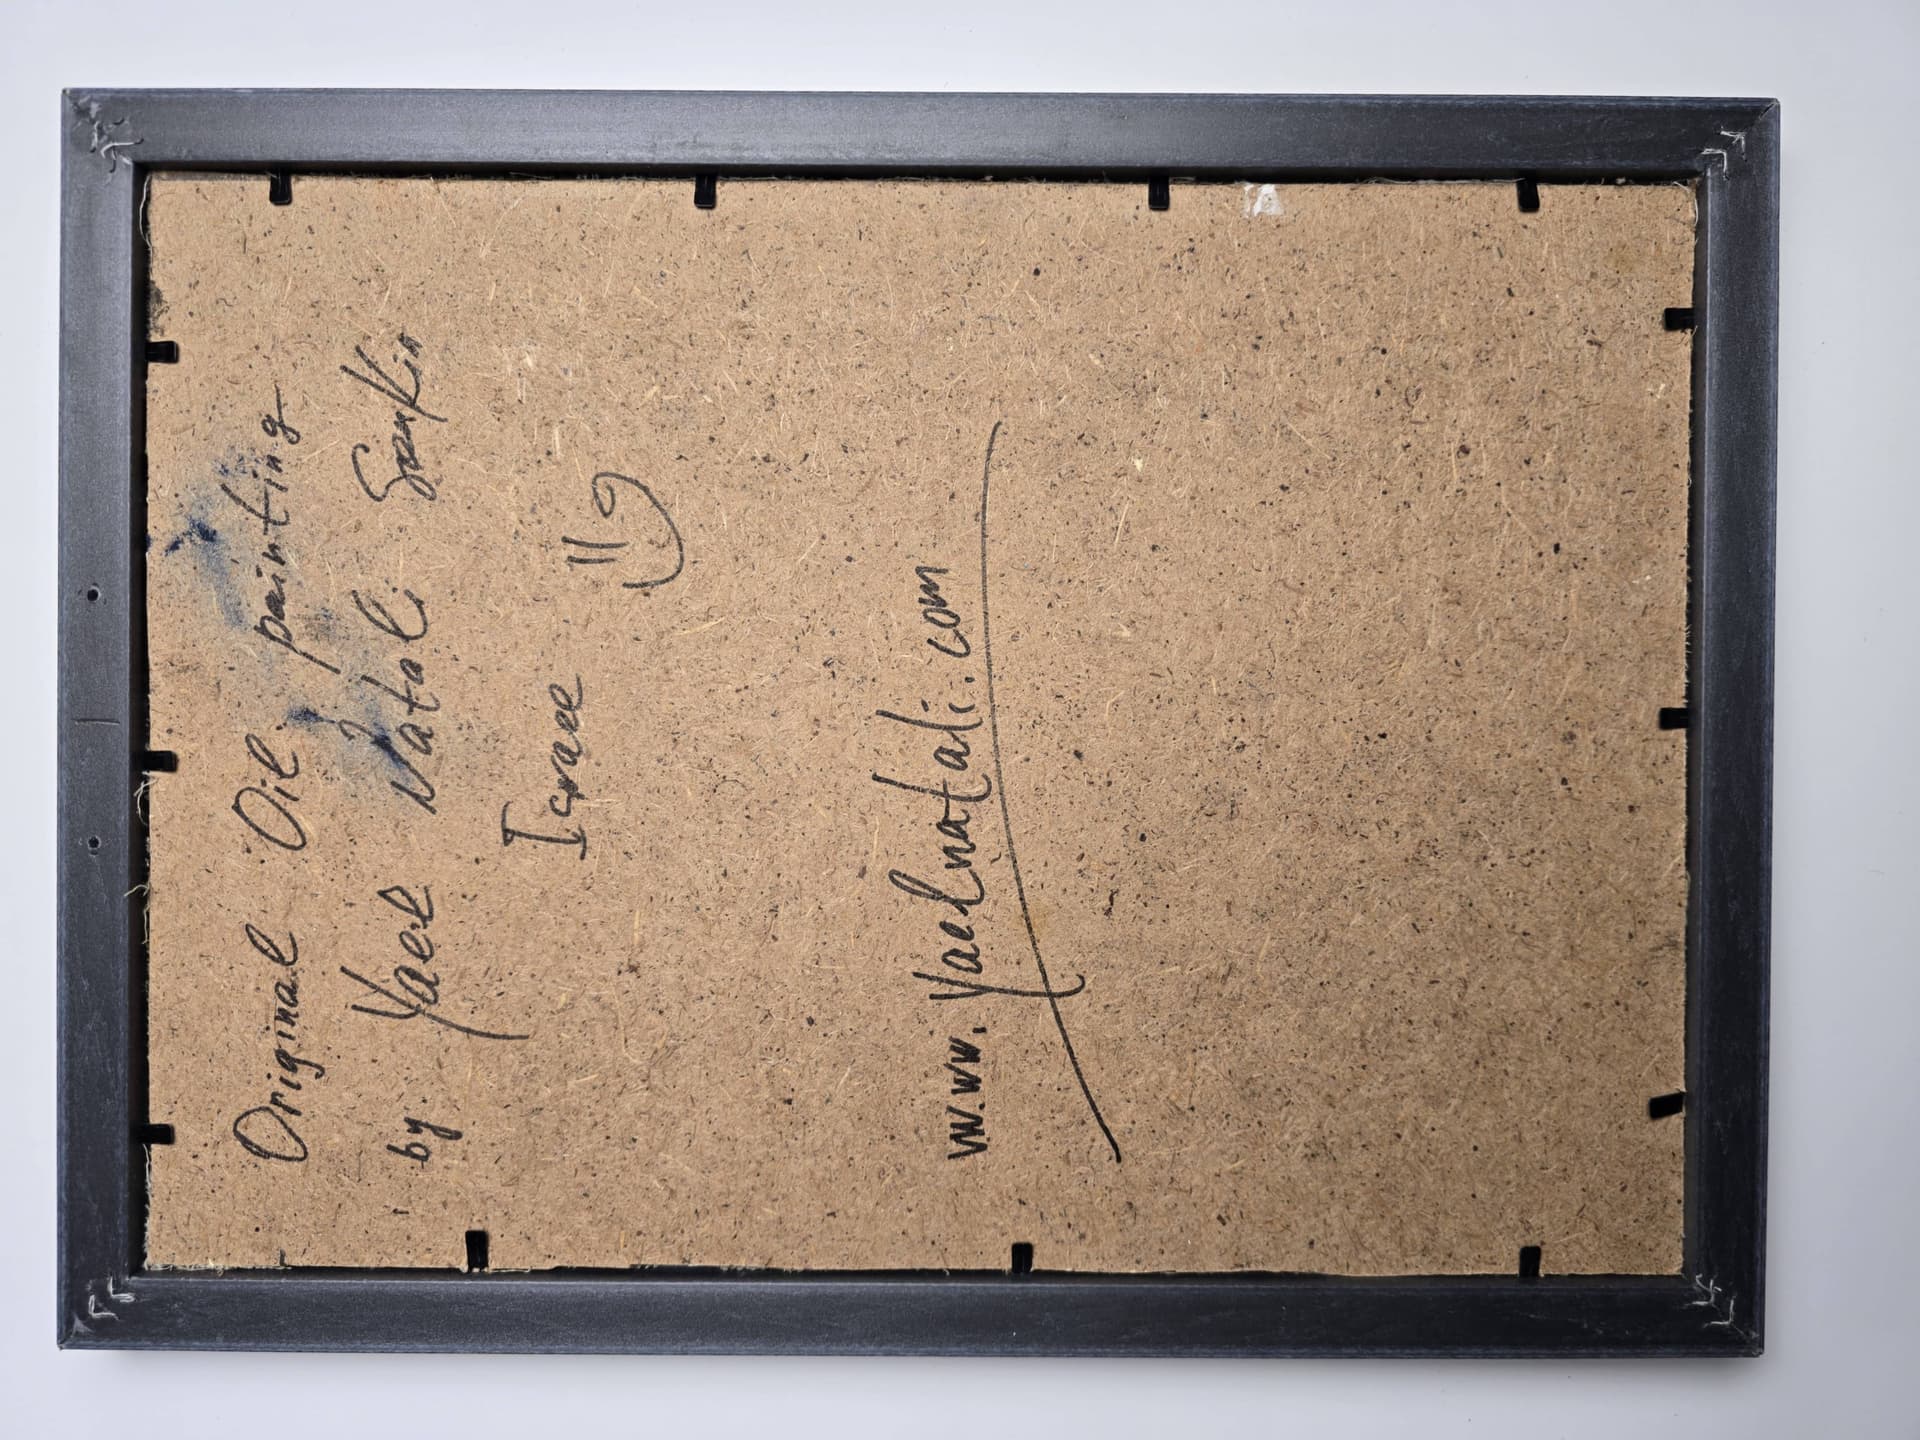 Original Oil painting
by Yael Natali Sankin
Israel
www.Yaelnatali.com